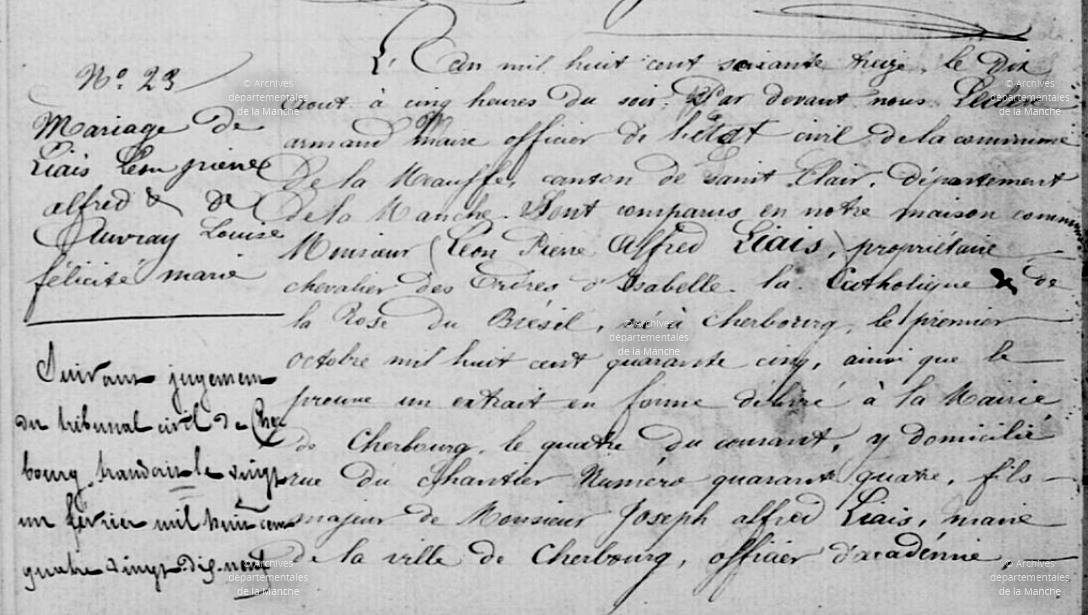 N° 23
Mariage de
Liais Léon pierre
alfred & de
Auvray Louise
félicité marie
Suivant jugement
du tribunal civil de Cher
bourg transcrit le vingt
un février mil huit cent
quatre vingt-dix-neuf
L'An mil huit cent soixante treize, le Dix
aout à cinq heures du soir. Par devant nous
armand Maire officier de l'état civil de la commune
De la Meauffe, canton de Saint Clair, département
de la Manche. Sont comparus en notre maison commune
Monsieur (Léon Pierre Alfred Liais,) propriétaire
chevalier des Ordres d'Isabelle la Catholique & de
la Rose du Brésil, né à Cherbourg, le premier
octobre mil huit cent quarante cinq, ainsi que le
prouve un extrait en forme délivré à la Mairie
de Cherbourg, le quatre du courant, y domicilié
rue du Chantier Numéro quarante quatre, fils
majeur de Monsieur Joseph alfred Liais, maire
de la ville de Cherbourg, officier d'académie
© Archives
départementales
de la Manche
© Archives
départementales
de la Manche
© Archives
départementales
de la Manche
© Archives
départementales
de la Manche
© Archives
départementales
de la Manche